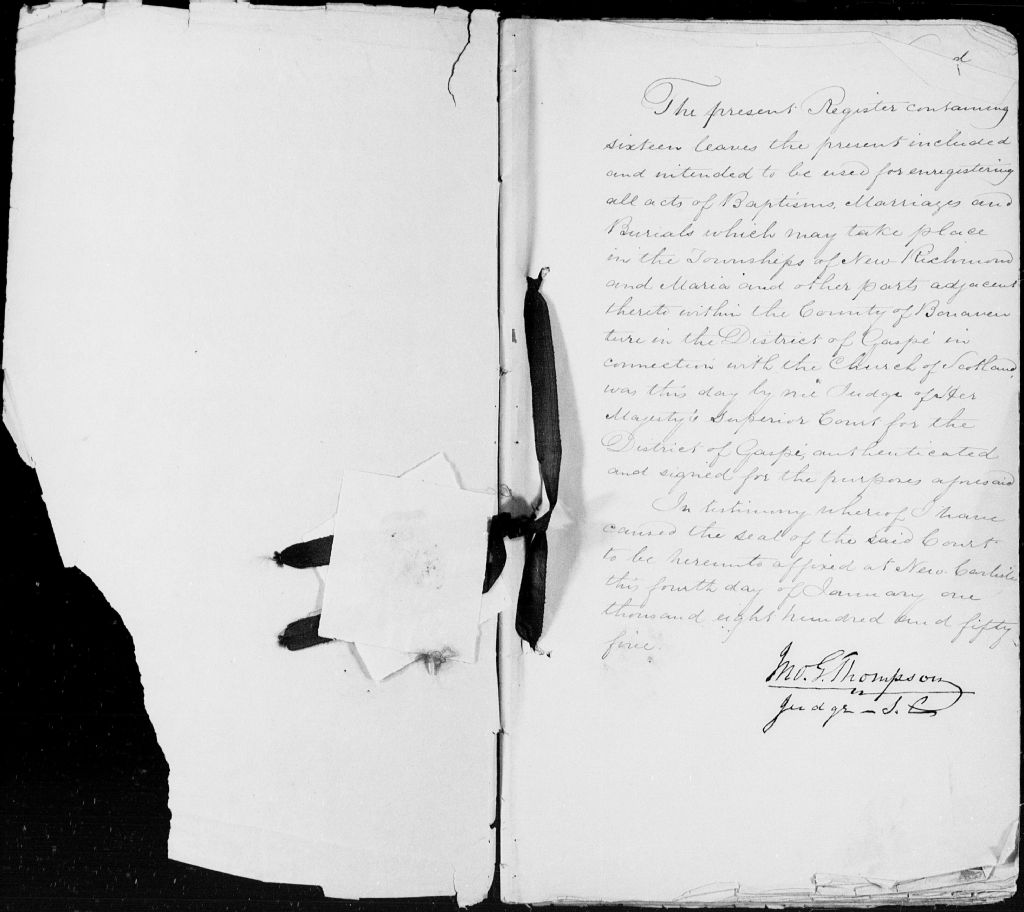 d
The present Register containing
sixteen leaves the present included
and intended to be used for enregistering
all acts of Baptisms, Marriages and
Burials which may take place
in the Townships of New Richmond
and Maria and other parts adjacent
thereto within the County of Bonaven
ture in the District of Gaspé in
connection with the Church of Scotland,
was this day by me Judge of Her
Majesty's Superior Court for the
District of Gaspé, authenticated
and signed for the purposes aforesaid
In testimony whereof I have
caused the seal of the said Court
to be hereunto affixed at New Carlisle
this fourth day of January one
thousand eight hundred and fifty
five.
Jno. G. Thompson
Judge - S. C